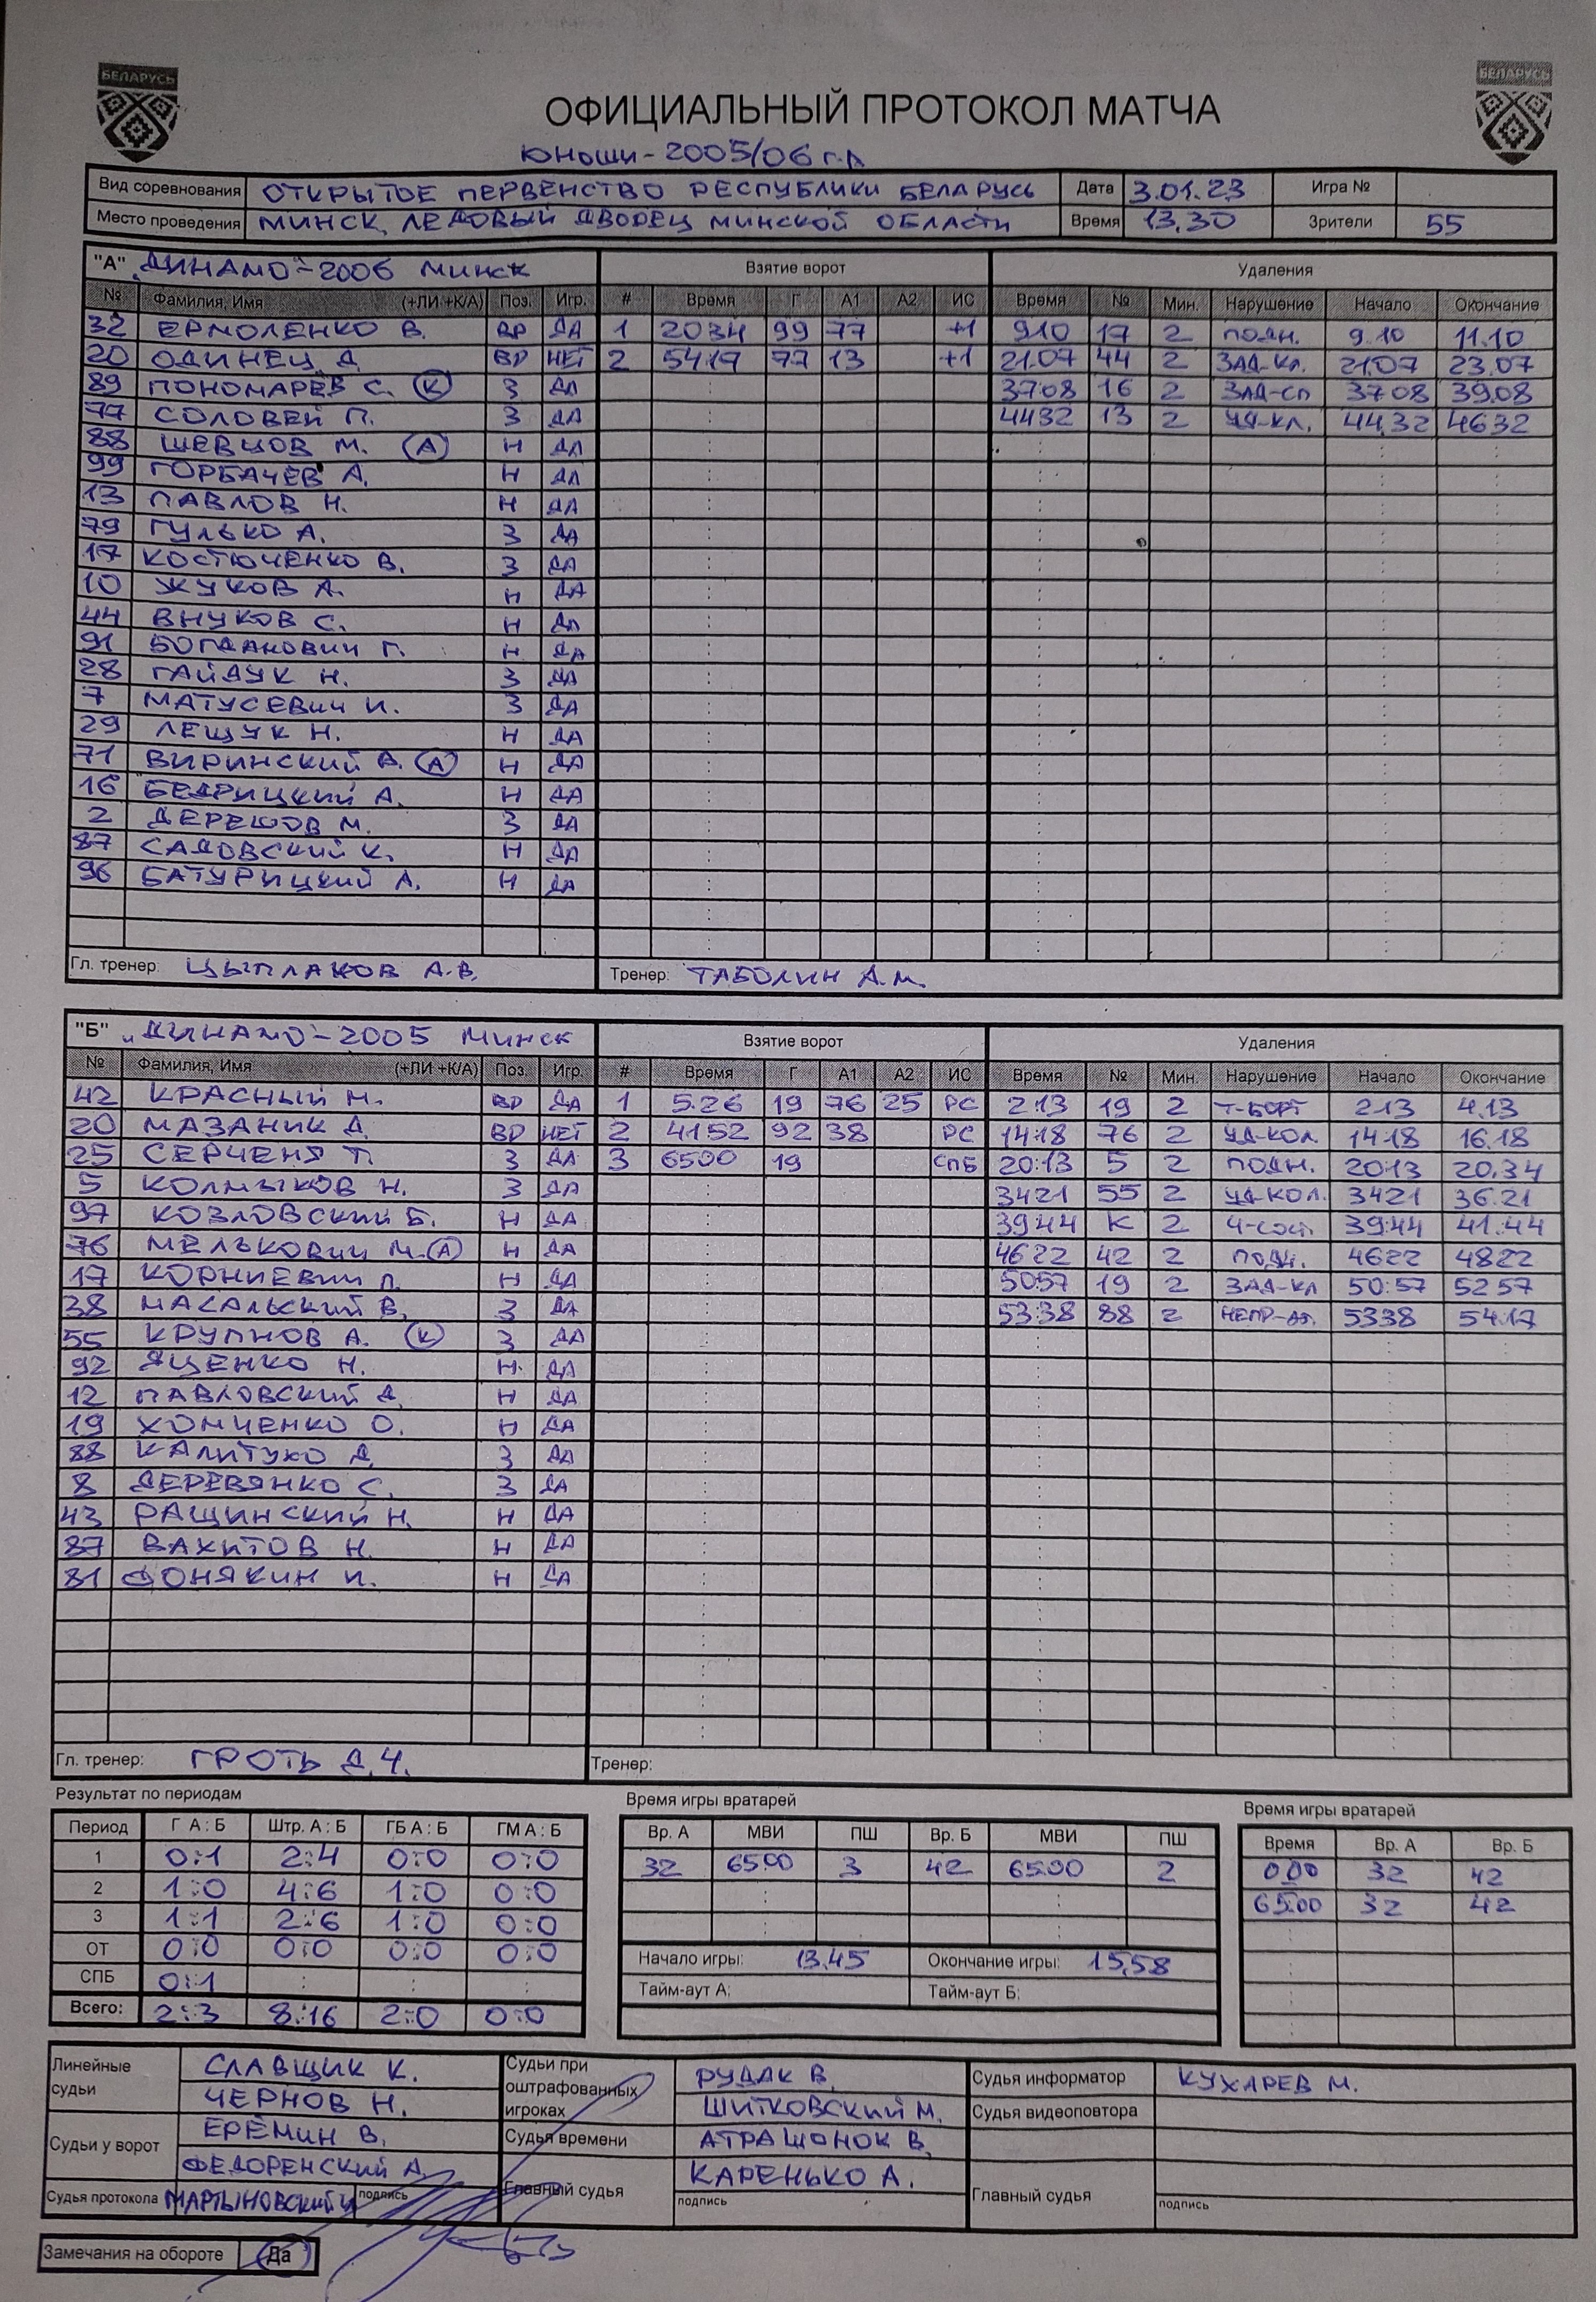 БЕЛАРУСЬ БЕЛАРУСЬ
ОФИЦИАЛЬНЫЙ ПРОТОКОЛ МАТЧА
ЮНОШИ - 2005/06 г.р.
Вид соревнования ОТКРЫТОЕ ПЕРВЕНСТВО РЕСПУБЛИКИ БЕЛАРУСЬ Дата 3.01.23 Игра №
Место проведения МИНСК, ЛЕДОВЫЙ ДВОРЕЦ МИНСКОЙ ОБЛАСТИ Время 13.30 Зрители 55
"А" „ДИНАМО"-2006 МИНСК Взятие ворот Удаления
№ Фамилия, Имя (+ЛИ +К/А) Поз. Игр. # Время Г А1 А2 ИС Время № Мин. Нарушение Начало Окончание
32 ЕРМОЛЕНКО В. ВР ДА 1 20 34 99 77 +1 9 10 17 2 ПОДН. 9.10 11.10
20 ОДИНЕЦ Д. ВР НЕТ 2 54 17 77 13 +1 21.07 44 2 ЗАД-КЛ. 21.07 23.07
89 ПОНОМАРЁВ С. (К) З ДА 37 08 16 2 ЗАД-СП 37 08 39.08
77 СОЛОВЕЙ П. З ДА 44 32 13 2 УД-КЛ. 44.32 46 32
88 ШЕВЦОВ М. (А) Н ДА
99 ГОРБАЧЁВ А. Н ДА
13 ПАВЛОВ Н. Н ДА
79 ГУЛЬКО А. З ДА
17 КОСТЮЧЕНКО В. З ДА
10 ЖУКОВ А. Н ДА
44 ВНУКОВ С. Н ДА
91 БОГДАНОВИЧ Г. Н ДА
28 ГАЙДУК Н. З ДА
7 МАТУСЕВИЧ И. З ДА
29 ЛЕЩУК Н. Н ДА
71 ВИРИНСКИЙ А. (А) Н ДА
16 БЕДРИЦКИЙ А. Н ДА
2 ДЕРЕШОВ М. З ДА
87 САДОВСКИЙ К. Н ДА
96 БАТУРИЦКИЙ А. Н ДА
Гл. тренер: ЦЫПЛАКОВ А.В. Тренер: ТАБОЛИН А.М.
"Б" „ДИНАМО"-2005 МИНСК Взятие ворот Удаления
№ Фамилия, Имя (+ЛИ +К/А) Поз. Игр. # Время Г А1 А2 ИС Время № Мин. Нарушение Начало Окончание
42 КРАСНЫЙ М. ВР ДА 1 5.26 19 76 25 РС 2 13 19 2 Т-БОРТ 2 13 4.13
20 МАЗАНИК Д. ВР НЕТ 2 41 52 92 38 РС 14:18 76 2 УД-КОЛ 14:18 16.18
25 СЕРЧЕНЯ Т. З ДА 3 65 00 19 СПБ 20:13 5 2 ПОДН. 20:13 20.34
5 КОЛМЫКОВ Н. З ДА 34 21 55 2 УД-КОЛ. 34 21 36.21
97 КОЗЛОВСКИЙ Б. Н ДА 39:44 К 2 Ч-СОСТ. 39:44 41.44
76 МЕЛЬКОВИЧ М. (А) Н ДА 46 22 42 2 ПОДН. 46 22 48 22
17 КОРНИЕВИЧ П. Н ДА 50 57 19 2 ЗАД-КЛ 50:57 52 57
38 МАСАЛЬСКИЙ В. З ДА 53:38 88 2 НЕПР-АТ. 53 38 54.17
55 КРУПНОВ А. (К) З ДА
92 ЯЦЕНКО Н. Н ДА
12 ПАВЛОВСКИЙ Д. Н ДА
19 ХОМЧЕНКО О. Н ДА
88 КАЛИТУХО Д. З ДА
8 ДЕРЕВЯНКО С. З ДА
43 РАЩИНСКИЙ Н. Н ДА
87 ВАХИТОВ Н. Н ДА
81 ФОНЯКИН И. Н ДА
Гл. тренер: ГРОТЬ Д.Ч. Тренер:
Результат по периодам Время игры вратарей Время игры вратарей
Период Г А : Б Штр. А : Б ГБ А : Б ГМ А : Б Вр. А МВИ ПШ Вр. Б МВИ ПШ Время Вр. А Вр. Б
1 0:1 2:4 0:0 0:0 32 65 00 3 42 65:00 2 0:00 32 42
2 1:0 4:6 1:0 0:0 65:00 32 42
3 1:1 2:6 1:0 0:0
ОТ 0:0 0:0 0:0 0:0 Начало игры: 13.45 Окончание игры: 15.58
СПБ 0:1 Тайм-аут А: Тайм-аут Б:
Всего: 2:3 8:16 2:0 0:0
Линейные судьи СЛАВЩИК К. Судьи при оштрафованных игроках РУДАК В. Судья информатор КУХАРЕВ М.
ЧЕРНОВ Н. ШИТКОВСКИЙ М. Судья видеоповтора
Судьи у ворот ЕРЁМИН В. Судья времени АТРАШОНОК В.
ФЕДОРЕНСКИЙ А. Главный судья КАРЕНЬКО А. Главный судья
Судья протокола МАРТЫНОВСКИЙ подпись подпись подпись
Замечания на обороте Да